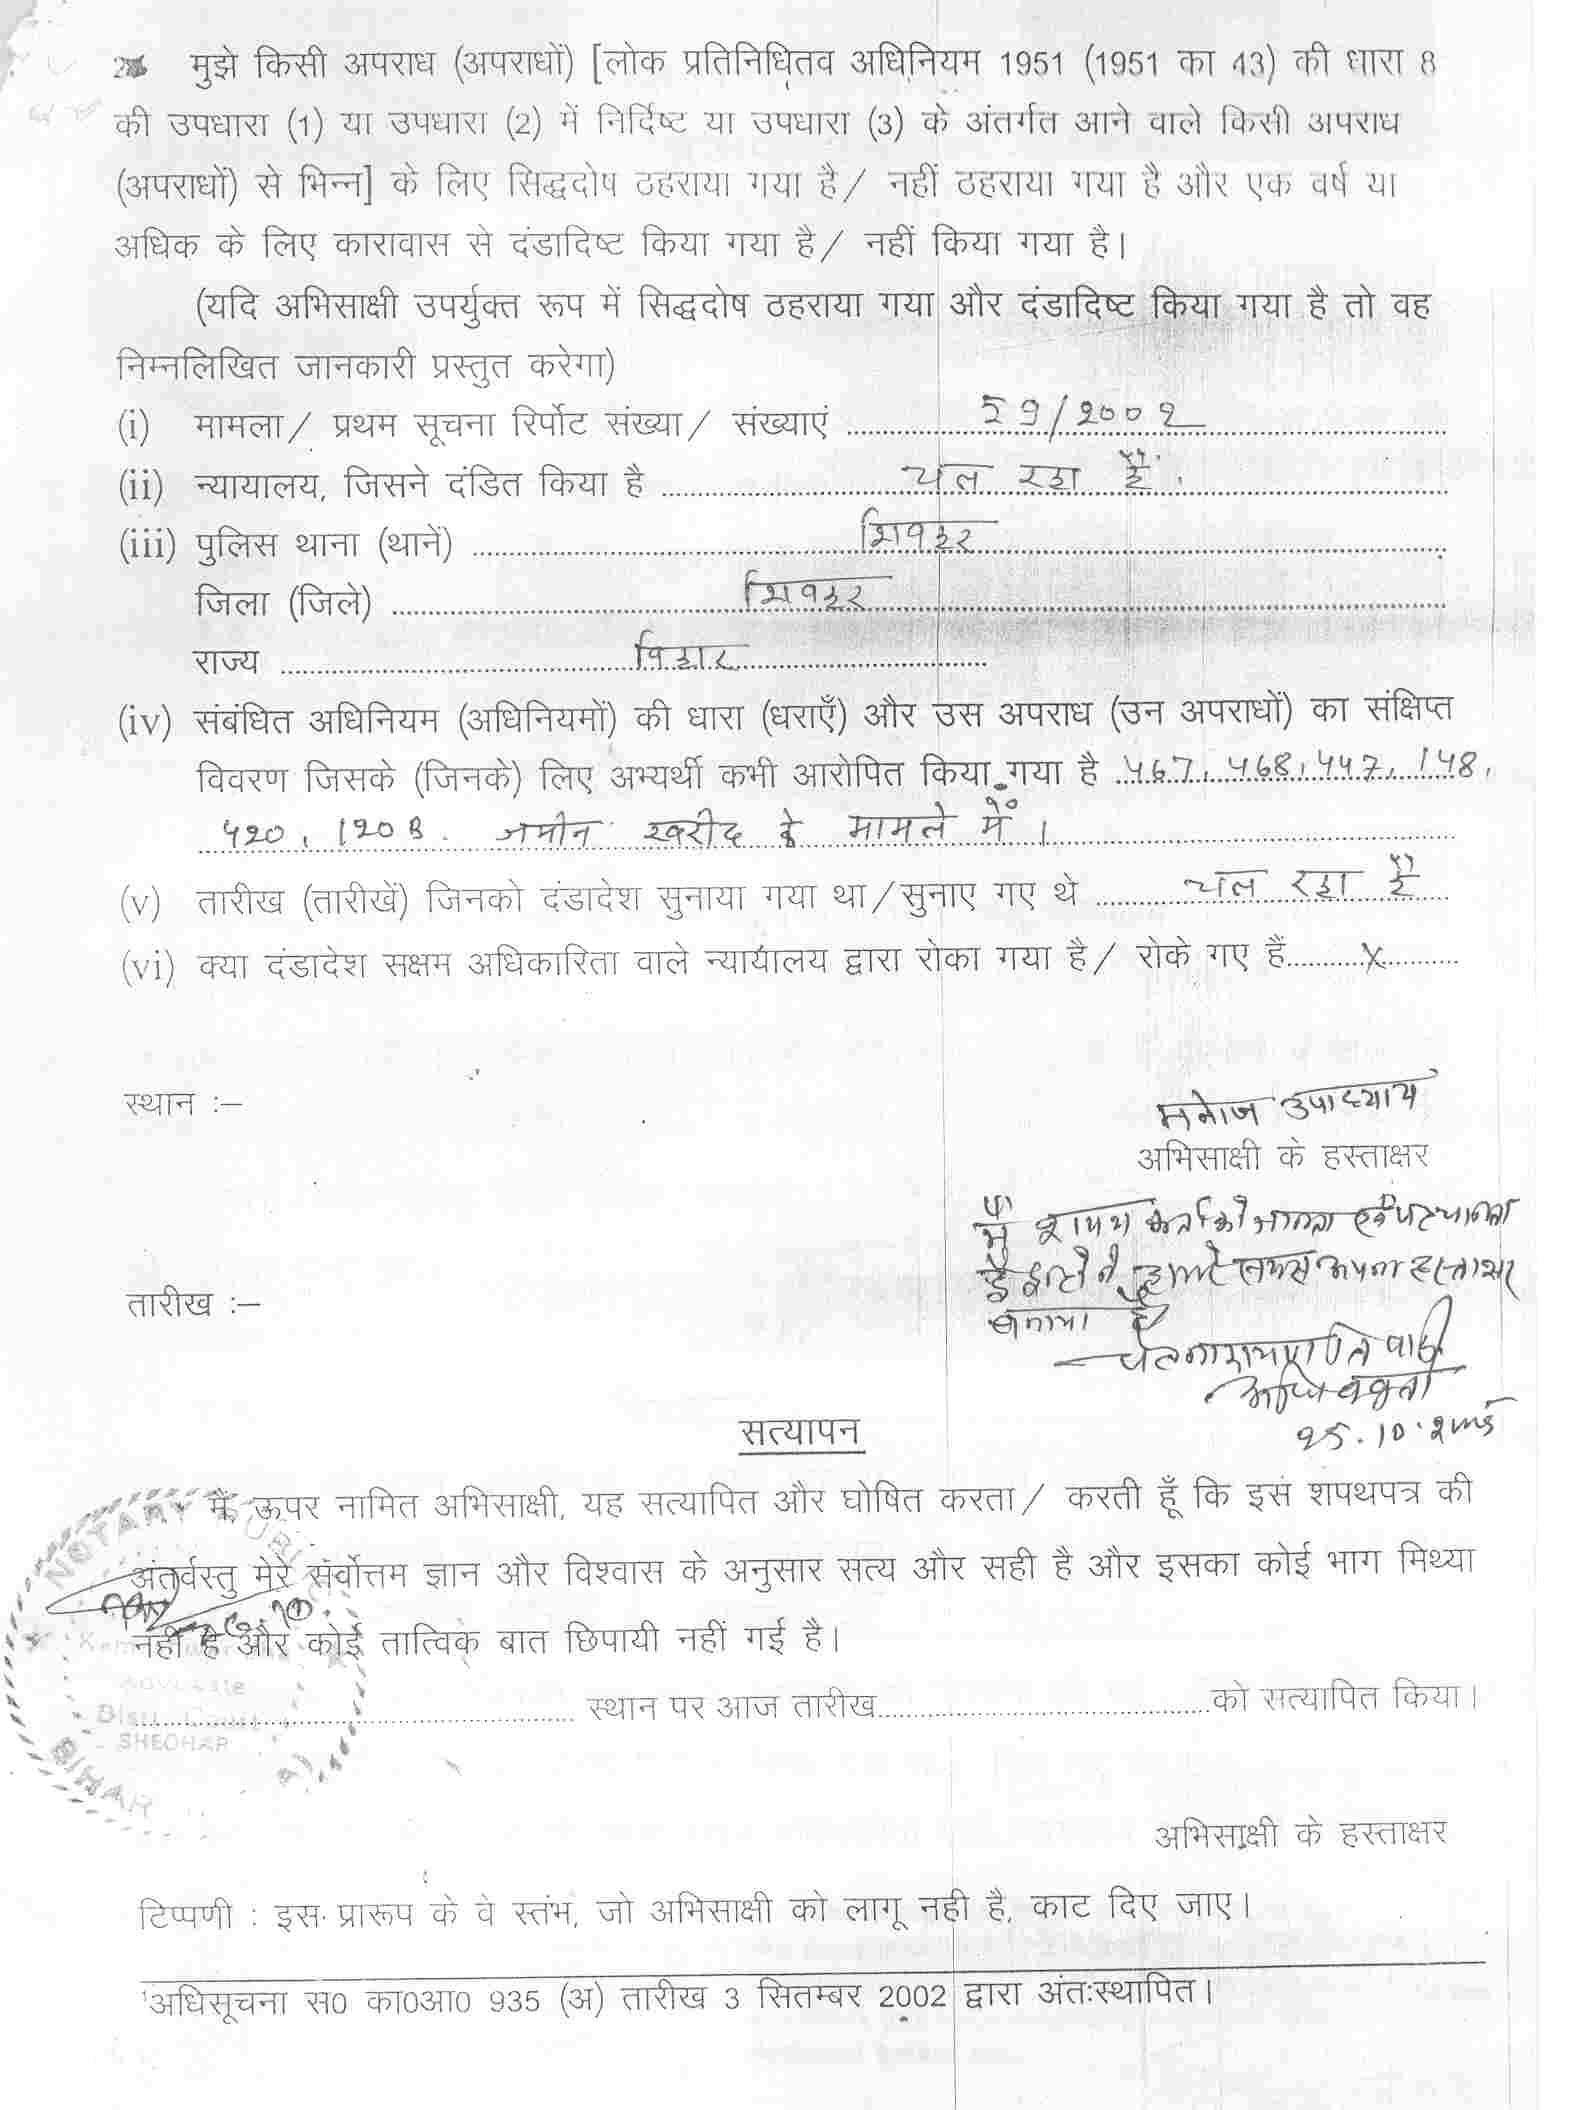 2. मुझे किसी अपराध (अपराधों) [लोक प्रतिनिधितव अधिनियम 1951 (1951 का 43) की धारा 8
की उपधारा (1) या उपधारा (2) में निर्दिष्ट या उपधारा (3) के अंतर्गत आने वाले किसी अपराध
(अपराधों) से भिन्न] के लिए सिद्धदोष ठहराया गया है/ नहीं ठहराया गया है और एक वर्ष या
अधिक के लिए कारावास से दंडादिष्ट किया गया है/ नहीं किया गया है।
(यदि अभिसाक्षी उपर्युक्त रूप में सिद्धदोष ठहराया गया और दंडादिष्ट किया गया है तो वह
निम्नलिखित जानकारी प्रस्तुत करेगा)
(i) मामला/ प्रथम सूचना रिर्पोट संख्या/ संख्याएं 59/2002
(ii) न्यायालय, जिसने दंडित किया है चल रहा है.
(iii) पुलिस थाना (थानें) शिवहर
जिला (जिले) शिवहर
राज्य विहार
(iv) संबंधित अधिनियम (अधिनियमों) की धारा (धराएँ) और उस अपराध (उन अपराधों) का संक्षिप्त
विवरण जिसके (जिनके) लिए अभ्यर्थी कभी आरोपित किया गया है 467, 468, 447, 148,
420, 120B. जमीन खरीद के मामले में।
(v) तारीख (तारीखें) जिनको दंडादेश सुनाया गया था/सुनाए गए थे चल रहा है
(vi) क्या दंडादेश सक्षम अधिकारिता वाले न्यायालय द्वारा रोका गया है/ रोके गए हैं x
स्थान :–
मनोज उपाध्याय
अभिसाक्षी के हस्ताक्षर
मैं शपथ कर्ता को जानता एवं पहचानता
हूँ इन्होंने हमारे समक्ष अपना हस्ताक्षर
बनाया है
तारीख :–
अधिवक्ता
25.10.
सत्यापन
मैं ऊपर नामित अभिसाक्षी, यह सत्यापित और घोषित करता/ करती हूँ कि इस शपथपत्र की
अंतर्वस्तु मेरे संर्वोत्तम ज्ञान और विश्वास के अनुसार सत्य और सही है और इसका कोई भाग मिथ्या
नहीं है और कोई तात्विक बात छिपायी नहीं गई है।
स्थान पर आज तारीख को सत्यापित किया।
NOTARY
Advocate
Distt. Court
SHEOHAR
BIHAR
अभिसाक्षी के हस्ताक्षर
टिप्पणी : इस प्रारूप के वे स्तंभ, जो अभिसाक्षी को लागू नही है, काट दिए जाए।
¹अधिसूचना स0 का0आ0 935 (अ) तारीख 3 सितम्बर 2002 द्वारा अंतःस्थापित।